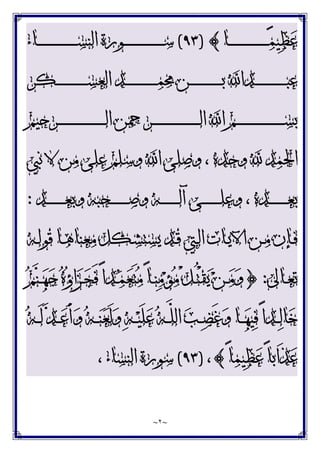 عَظِيمًا ﴾ (٩٣) سورة النساء
عبدالله بن محمد العسكر
بسم الله الرحمن الرحيم
الحمد لله وحده ، وصلى الله وسلم على من لا نبي
بعده ، وعلى آله وصحبه وبعد :
فإن من الآيات التي قد يستشكل معناها قوله
تعالى: ﴿ وَمَن يَقْتُلْ مُؤْمِنًا مُّتَعَمِّدًا فَجَزَآؤُهُ جَهَنَّمُ
خَالِدًا فِيهَا وَغَضِبَ اللّهُ عَلَيْهِ وَلَعَنَهُ وَأَعَدَّ لَهُ
عَذَابًا عَظِيمًا ﴾ ، (٩٣) سورة النساء ،
~٢~